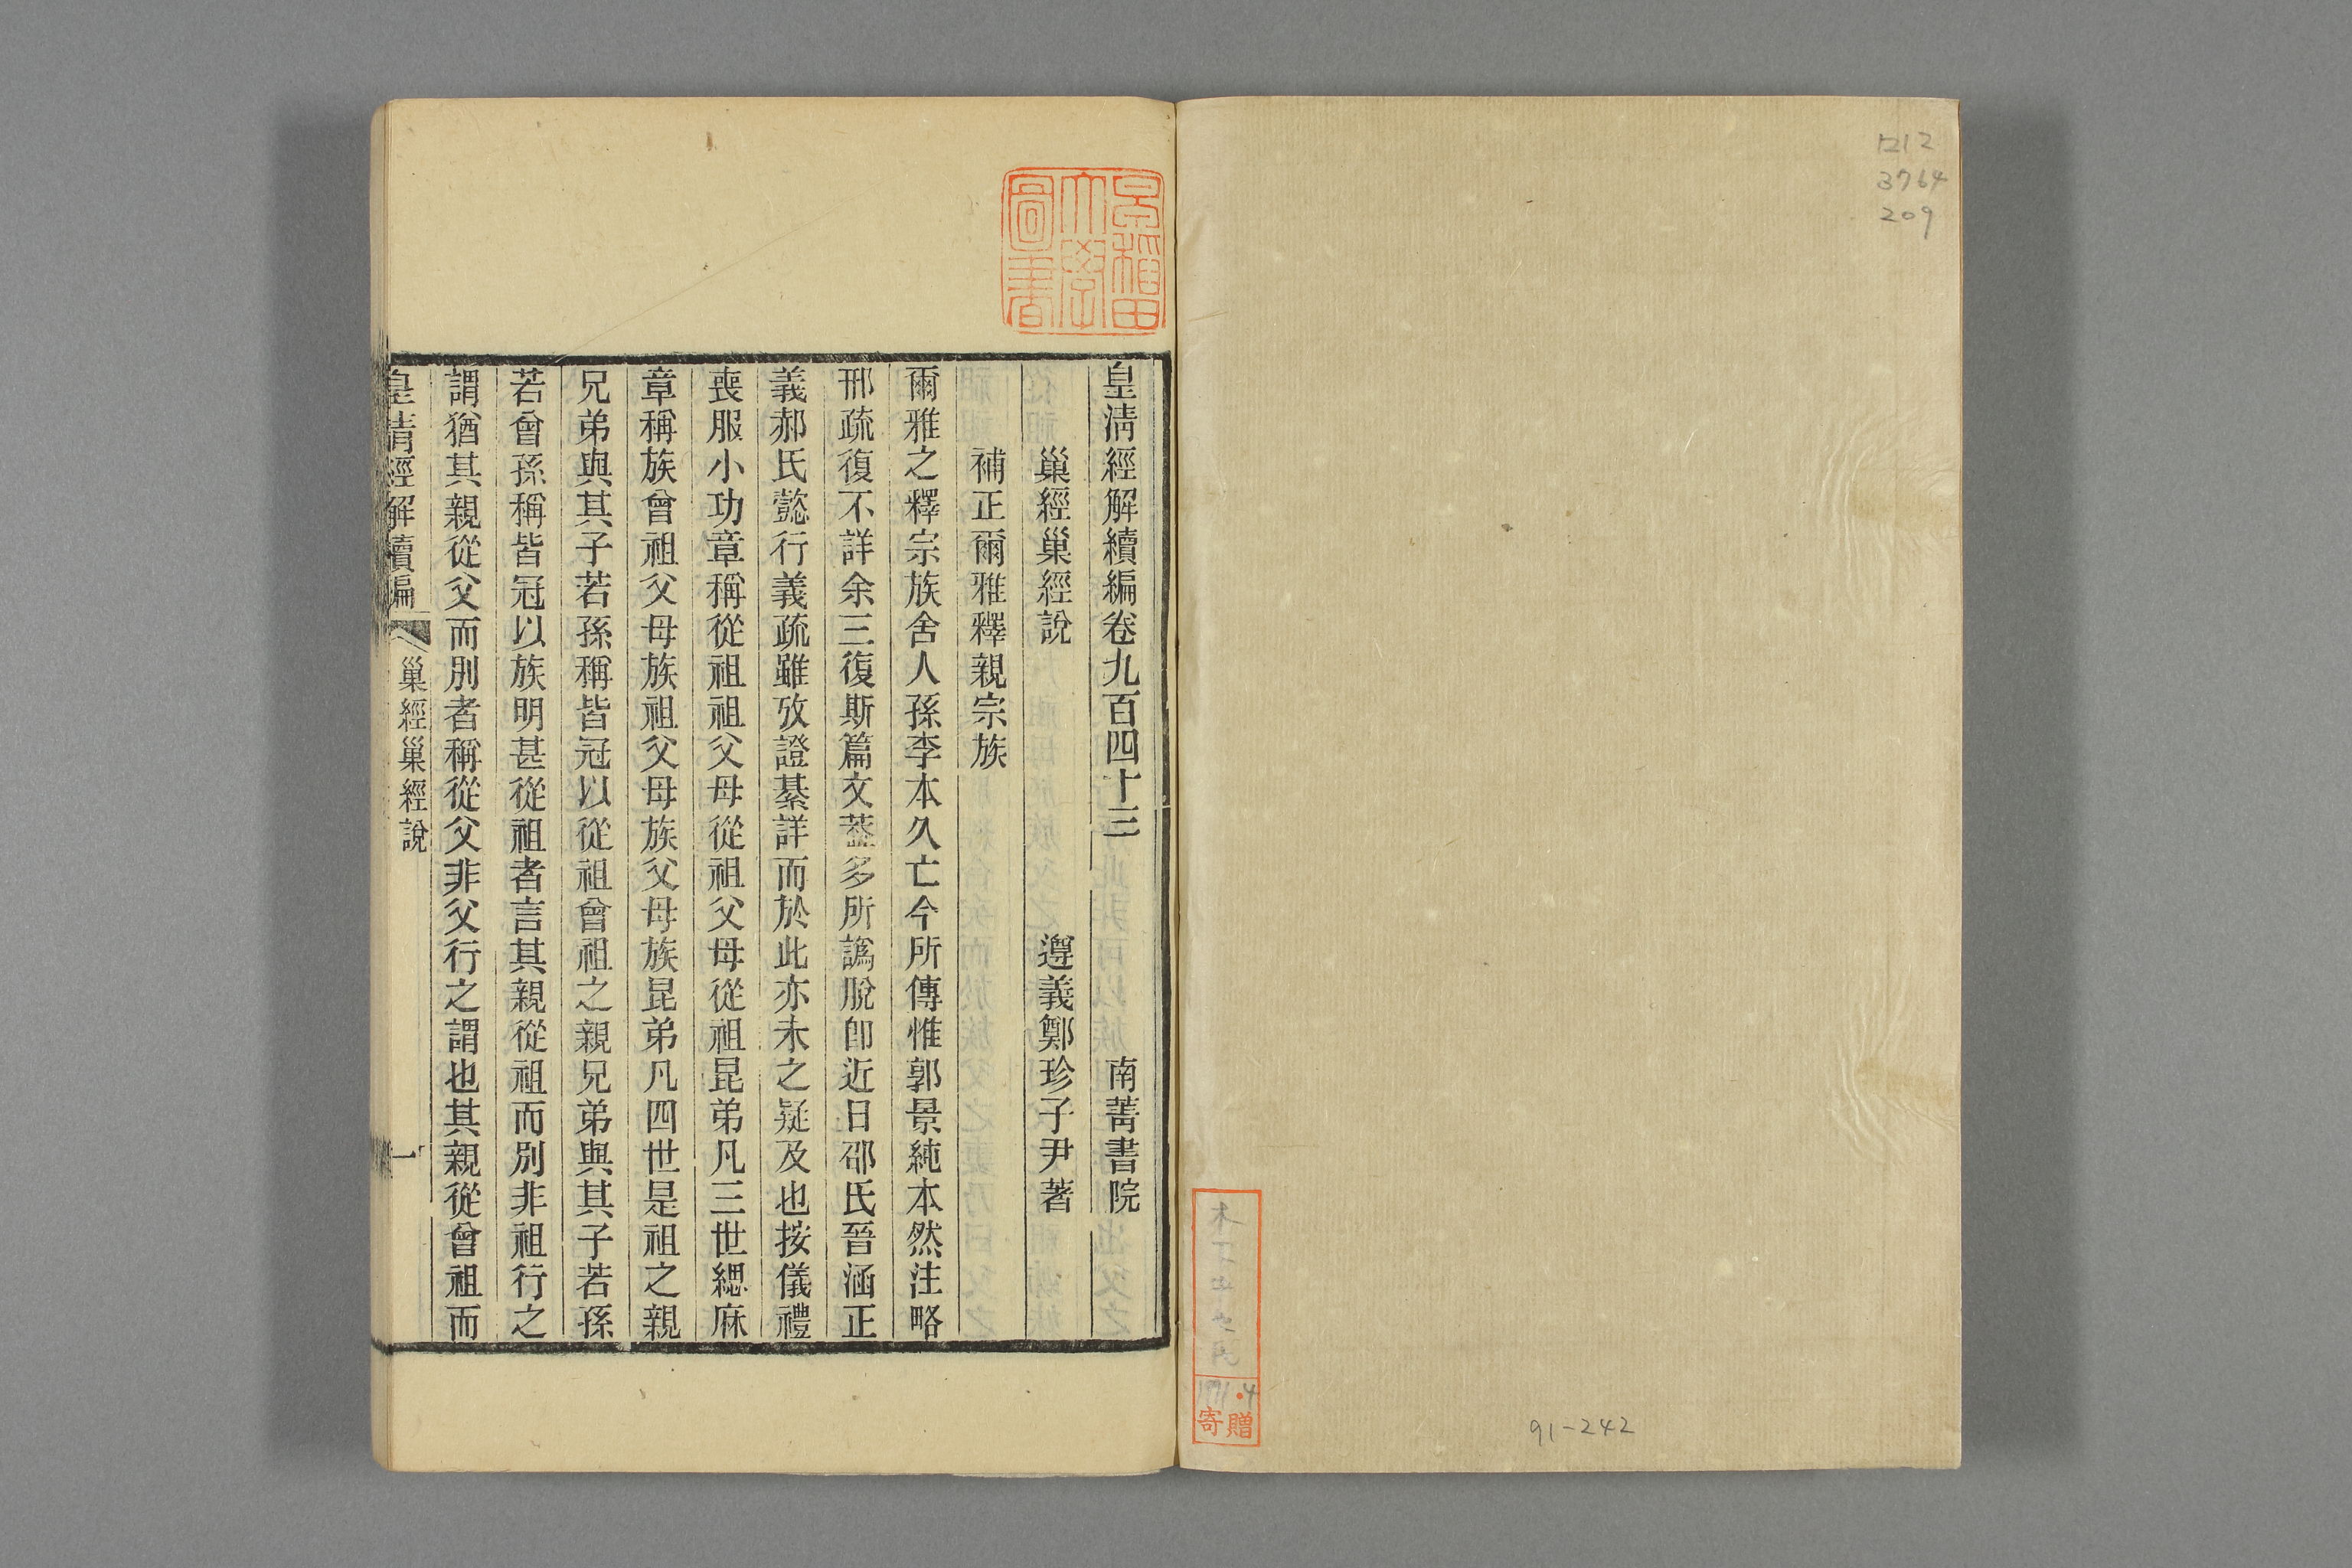 ロ12
3764
209
91-242
寄贈
早稲田大學圖書
皇清經解續編卷九百四十三 南菁書院
巢經巢經說 遵義鄭珍子尹著
補正爾雅釋親宗族
爾雅之釋宗族舍人孫李本久亡今所傳惟郭景純本然注略
邢疏復不詳余三復斯篇文蓋多所譌脫卽近日邵氏晉涵正
義郝氏懿行義疏雖攷證綦詳而於此亦未之疑及也按儀禮
喪服小功章稱從祖祖父母從祖父母從祖昆弟凡三世緦麻
章稱族曾祖父母族祖父母族父母族昆弟凡四世是祖之親
兄弟與其子若孫稱皆冠以從祖曾祖之親兄弟與其子若孫
若曾孫稱皆冠以族明甚從祖者言其親從祖而別非祖行之
謂猶其親從父而別者稱從父非父行之謂也其親從曾祖而
皇清經解續編 巢經巢經說 一